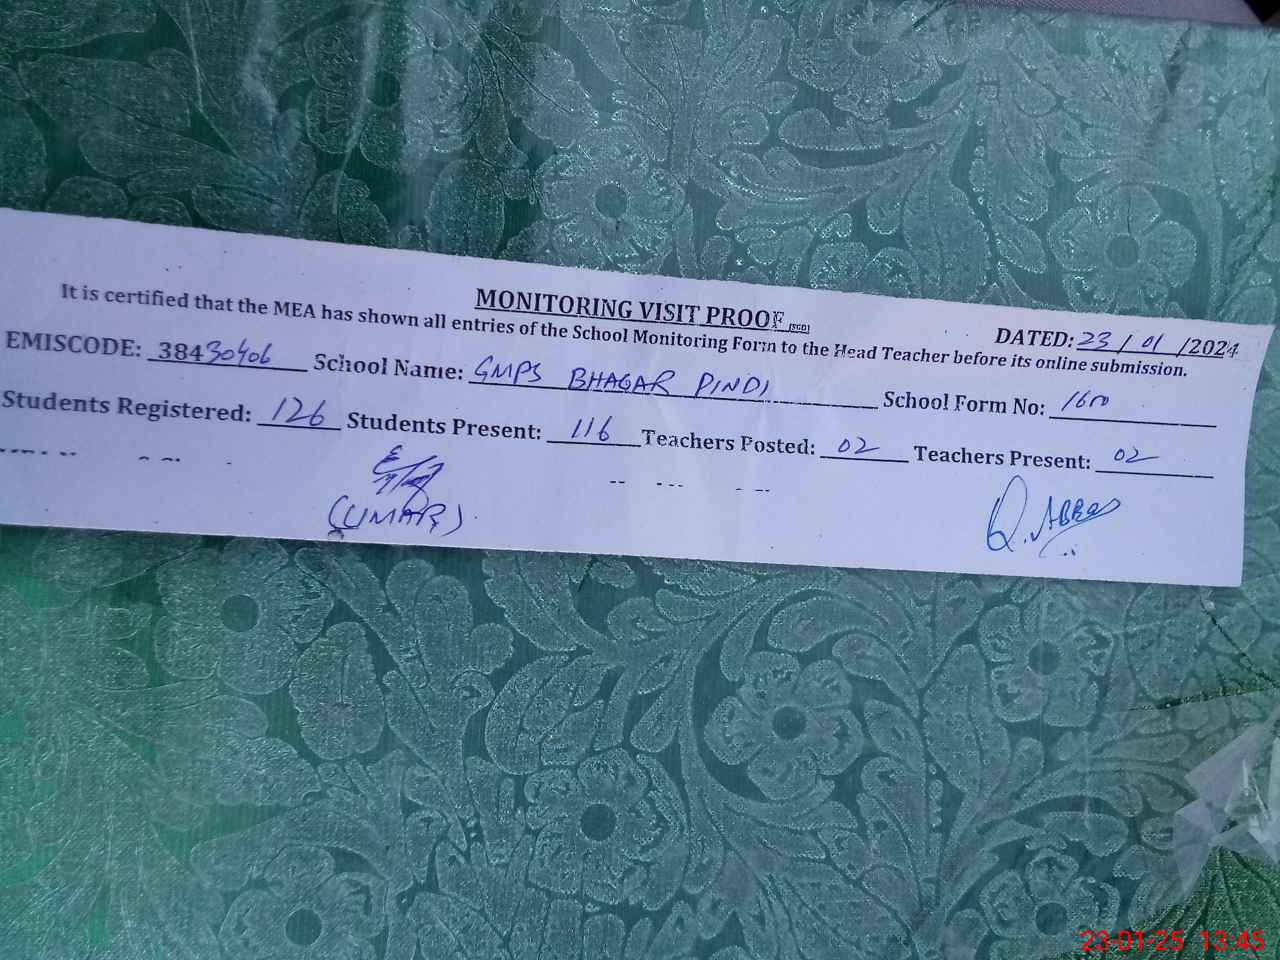 MONITORING VISIT PROOF (SGD)
DATED: 23 / 01 /2024
It is certified that the MEA has shown all entries of the School Monitoring Form to the Head Teacher before its online submission.
EMISCODE: 38430406 School Name: GMPS BHAGAR PINDI School Form No: 1600
Students Registered: 126 Students Present: 116 Teachers Posted: 02 Teachers Present: 02
(UMAR)
Q. ABBAS
23-01-25 13:45